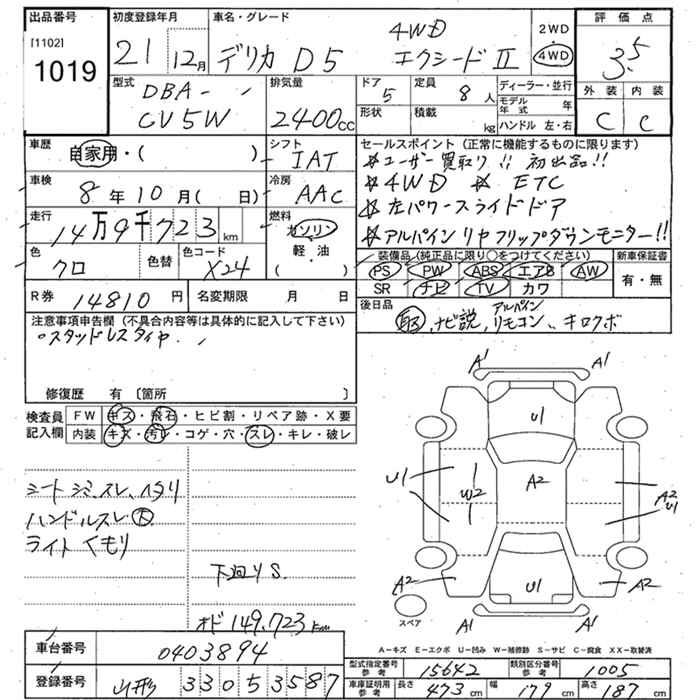 出品番号 初度登録年月 車名・グレード 4WD 2WD 評価点
[1102]
1019 21 12月 デリカ D5 エクシードⅡ 4WD 3.5
型式 DBA- 排気量 ドア 5 定員 8人 ディーラー・並行 外装 内装
CV5W 2400cc 形状 積載 kg モデル年式 年 C C
ハンドル 左・右
車歴 自家用・( ) シフト IAT セールスポイント(正常に機能するものに限ります)
☆ユーザー買取り!! 初出品!!
車検 8年10月( 日) 冷房 AAC ☆4WD ☆ ETC
走行 14万9千723km 燃料 ガソリン ☆左パワースライドドア
軽・油 ☆アルパインリヤフリップダウンモニター!!
色 クロ 色替 色コード X24 ( ) 装備品(純正品に限り○をつけてください) 新車保証書
PS PW ABS エアB AW 有・無
SR ナビ TV カワ
R券 14810円 名変期限 月 日 後日品
注意事項申告欄(不具合内容等は具体的に記入して下さい) アルパイン
取、ナビ説、リモコン、キロクボ
○スタッドレスタイヤ、
修復歴 有〔箇所 〕
検査員記入欄 FW キズ・飛石・ヒビ割・リペア跡・X要
内装 キズ・汚レ・コゲ・穴・スレ・キレ・破レ
A1 A1
U1
U1 W2 A2 A2
U1
シートシミ、スレ、ヘタリ
ハンドルスレ大
ライトくもり
下廻りS.
A2 U1 A2
オド149,723km
スペア A1 A1
A-キズ E-エクボ U-凹み W-補修跡 S-サビ C-腐食 XX-取替済
車台番号 0403894
型式指定番号 参考 15642 類別区分番号 参考 1005
登録番号 山形 330 5 3587
車庫証明用 参考 長さ 473cm 幅 179cm 高さ 187cm